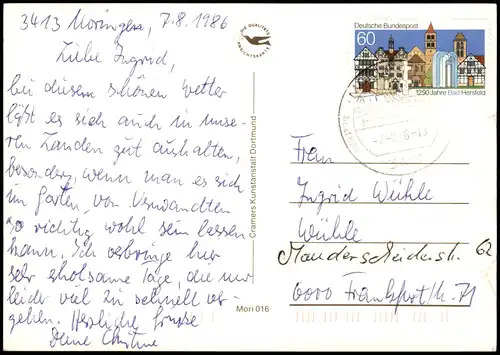 3413 Moringen, 7.8.1986
Liebe Ingrid,
bei diesem schönen Wetter
läßt es sich auch in unse-
ren Landen gut aushalten,
besonders, wenn man es sich
im Garten von Verwandten
so richtig wohl sein lassen
kann. Ich verbringe hier
sehr erholsame Tage, die nur
leider viel zu schnell ver-
gehen. Herzliche Grüße
Deine Christine
DIE QUALITÄTS
ANSICHTSKARTE
Cramers Kunstanstalt Dortmund
Mori 016
Deutsche Bundespost
60
1250 Jahre Bad Hersfeld
Frau
Ingrid Wühle
Wühle
Manderscheiderstr. 62
6000 Frankfurt/M. 71